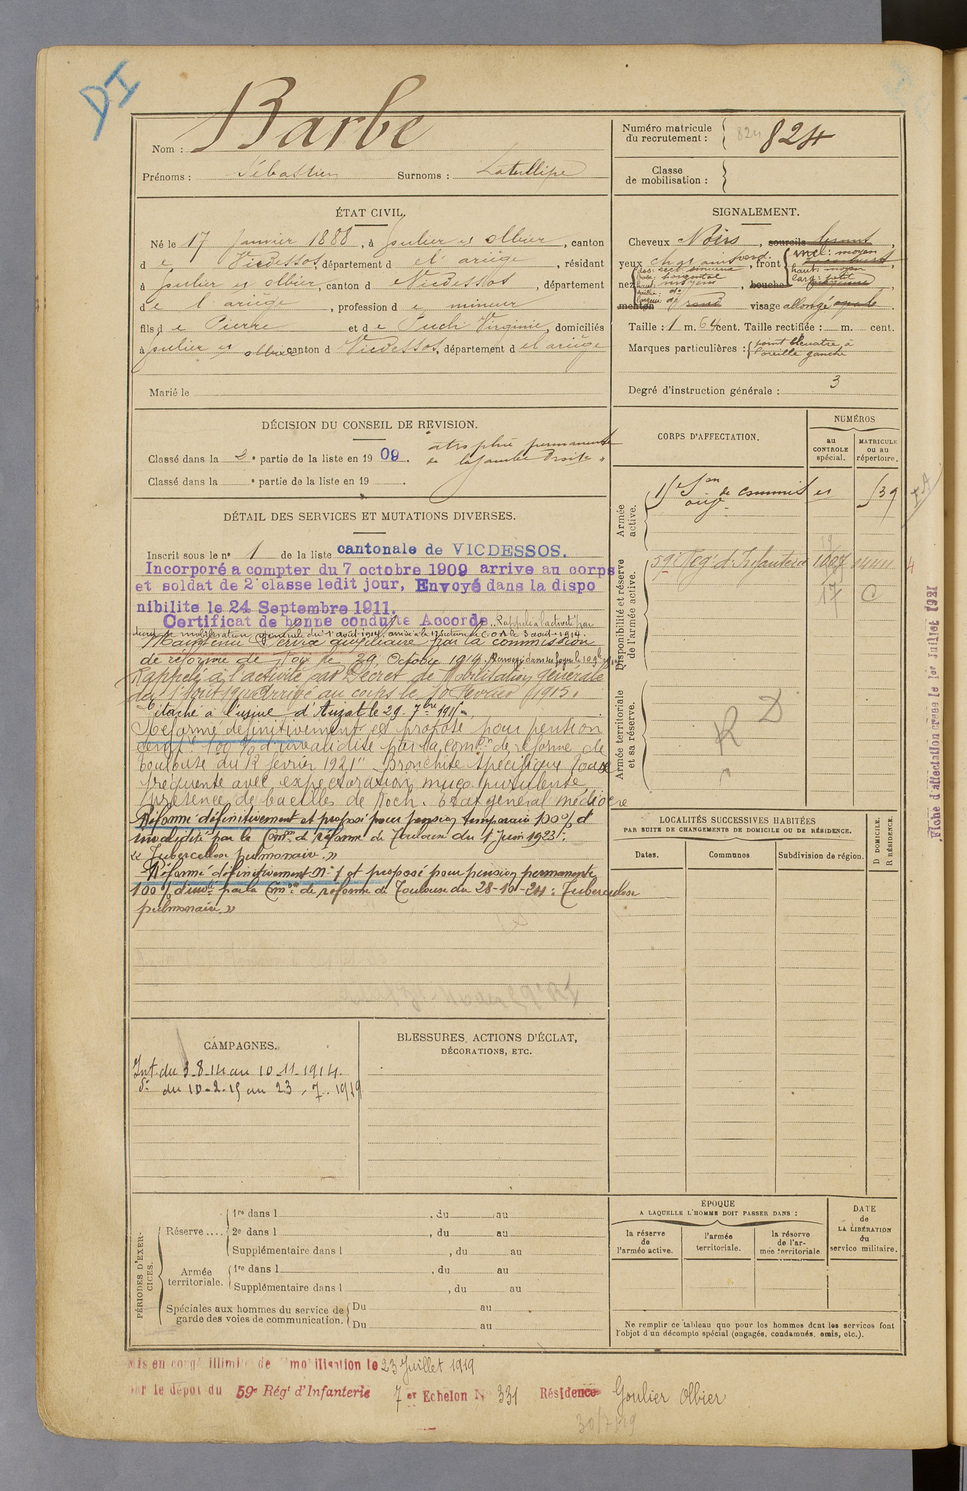 DI
Nom : Barbe
Prénoms : Sébastien Surnoms : Latullipe
Numéro matricule du recrutement : 824
Classe de mobilisation :
ÉTAT CIVIL.
Né le 17 Janvier 1888, à Goulier et Olbier, canton
de Vicdessos, département de l'ariège, résidant
à Goulier et Olbier, canton de Vicdessos, département
de l'ariège, profession de mineur
fils de Pierre et de Puch Virginie, domiciliés
à Goulier et olbier canton de Vicdessos, département de l'ariège
Marié le
SIGNALEMENT.
Cheveux Noirs, sourcils
yeux, front
nez, bouche
menton visage allongé
Taille : 1 m. 64 cent. Taille rectifiée : m. cent.
Marques particulières : point bleuatre à
l'oreille gauche
Degré d'instruction générale : 3
DÉCISION DU CONSEIL DE REVISION.
Classé dans la 2e partie de la liste en 1909. atrophie permanente
de la jambe droite.
Classé dans la e partie de la liste en 19
DÉTAIL DES SERVICES ET MUTATIONS DIVERSES.
Inscrit sous le n° 1 de la liste cantonale de VICDESSOS.
Incorporé a compter du 7 octobre 1909 arrive au corps
et soldat de 2e classe ledit jour, Envoyé dans la dispo
nibilite le 24 Septembre 1911.
Certificat de bonne conduite Accorde. Rappelé à l'activité par
décret de mobilisation générale du 1 août 1914, arrivé à la 17e section de C.O.A le 3 août 1914.
Maintenu Service auxiliaire par la commission
de réforme de Foix le 29 Octobre 1914. Renvoyé dans ses foyers le 10 9bre 1914
Rappelé à l'activité par Décret de Mobilisation générale
du 1 Août 1914 Arrivé au corps le 10 Février 1915.
Détaché à l'usine d'Auzat le 29 7bre 1915.
Réformé définitivement et proposé pour pension
temp. 100 % d'invalidité par la comon de réforme de
Toulouse du 12 février 1921 "Bronchite Spécifique Toux
fréquente avec expectoration muco purulente,
présence de bacilles de Koch. Etat général médiocre
Réformé définitivement et proposé pour pension temporaire 100 % d'
invalidité par la Comon de réforme de Toulouse du 1 Juin 1923 :
"Tuberculose pulmonaire."
Réformé définitivement N° 1 et proposé pour pension permanente
100 % d'inv. par la Comon de réforme de Toulouse du 28-10-24 : Tuberculose
pulmonaire."
CORPS D'AFFECTATION.
NUMÉROS
au CONTROLE spécial.
MATRICULE ou au répertoire.
Armée active.
Disponibilité et réserve de l'armée active.
59e Régt d'Infanterie
17 C
Armée territoriale et sa réserve.
R D
LOCALITÉS SUCCESSIVES HABITÉES
PAR SUITE DE CHANGEMENTS DE DOMICILE OU DE RÉSIDENCE.
Dates.
Communes
Subdivision de région.
D DOMICILE.
R RÉSIDENCE.
CAMPAGNES.
Int. du 3.8.14 au 10.11.1914.
do du 10-2-15 au 23-7-1919
BLESSURES, ACTIONS D'ÉCLAT,
DÉCORATIONS, ETC.
PÉRIODES D'EXERCICES.
Réserve ....
1re dans l , du au
2e dans l , du au
Supplémentaire dans l , du au
Armée territoriale.
1re dans l , du au
Supplémentaire dans l , du au
Spéciales aux hommes du service de garde des voies de communication.
Du au
Du au
ÉPOQUE
A LAQUELLE L'HOMME DOIT PASSER DANS :
la réserve de l'armée active.
l'armée territoriale.
la réserve de l'armée territoriale
DATE de LA LIBÉRATION du service militaire.
Ne remplir ce tableau que pour les hommes dont les services font
l'objet d'un décompte spécial (engagés, condamnés, omis, etc.).
Mis en congé illimité de démobilisation le 23 Juillet 1919
par le dépot du 59e Régt d'Infanterie 7er Echelon N° 331 Résidence Goulier Olbier
30/7/19
Fiche d'affectation créée le 1er Juillet 1921